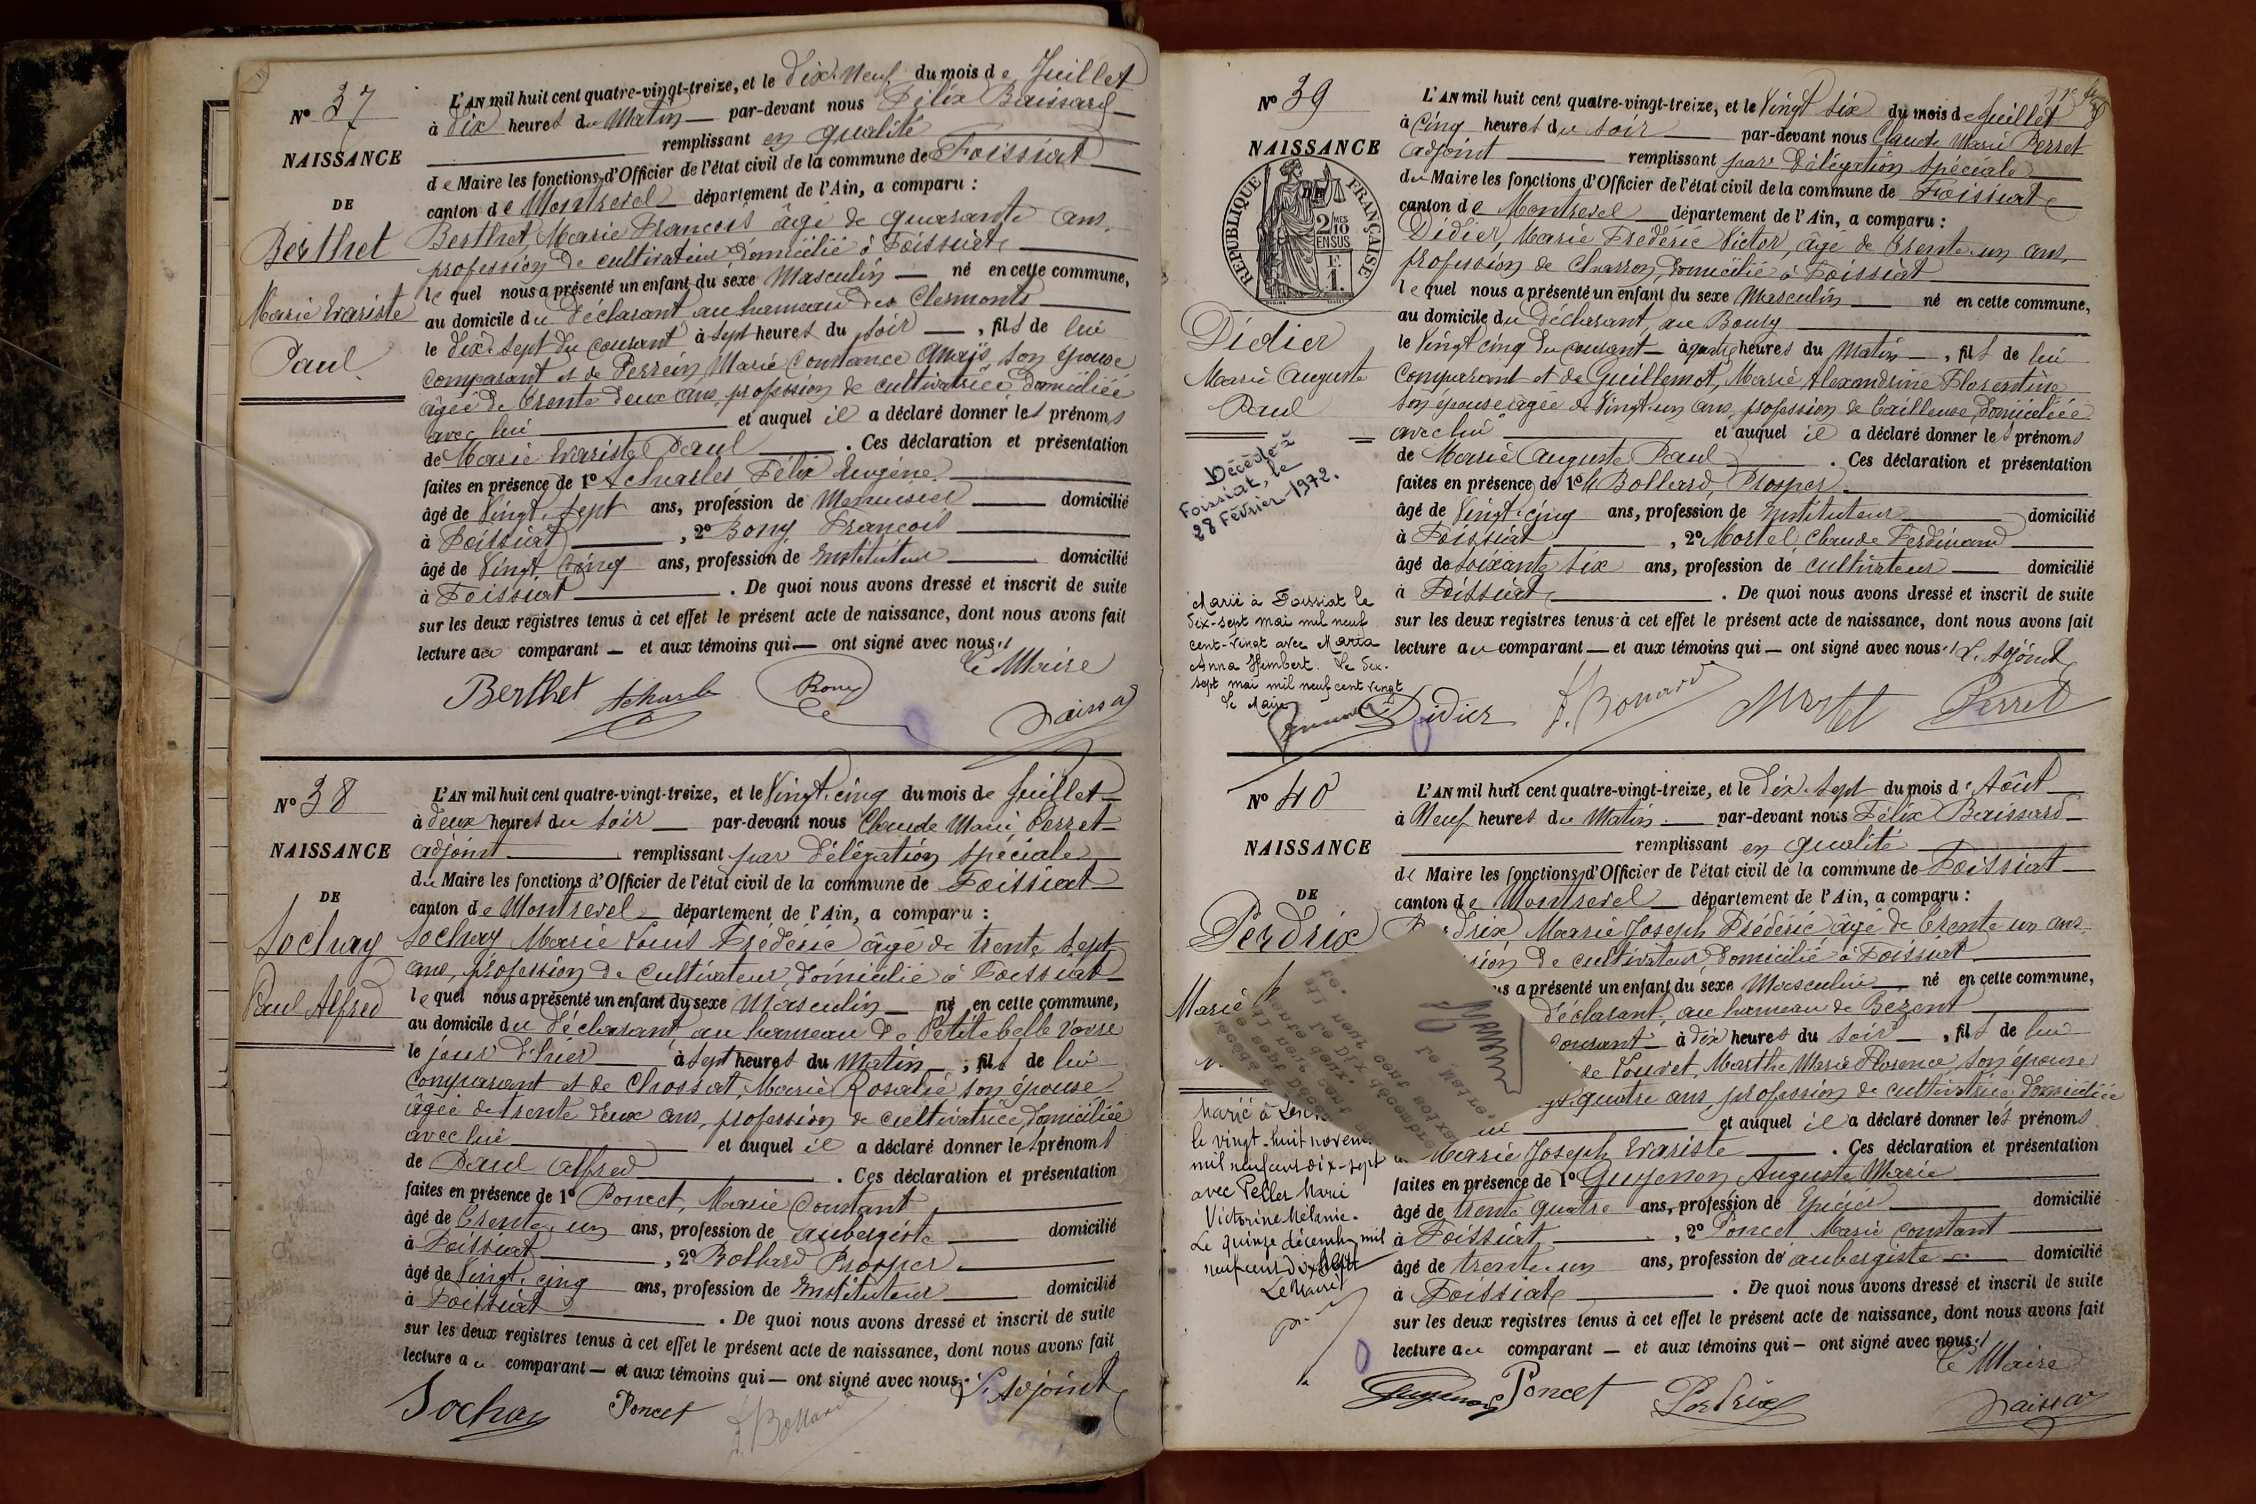 N° 37
NAISSANCE
DE
Berthet
Marie Evariste
Paul
L'AN mil huit cent quatre-vingt-treize, et le Dix-Neuf du mois de Juillet
à Dix heures du Matin par-devant nous Félix Baissard
remplissant en qualité
de Maire les fonctions d'Officier de l'état civil de la commune de Foissiat
canton de Montrevel département de l'Ain, a comparu :
Berthet, Marie François âgé de quarante ans,
profession de cultivateur, domicilié à Foissiat
lequel nous a présenté un enfant du sexe Masculin né en cette commune,
au domicile du Déclarant au hameau des Clermonts
le dix-sept du courant à sept heures du soir, fils de lui
comparant et de Perrein Marie Constance Anaïs son épouse
âgée de trente deux ans, profession de cultivatrice domiciliée
avec lui et auquel il a déclaré donner les prénoms
de Marie Evariste Paul. Ces déclaration et présentation
faites en présence de 1° Acharles Félix Eugène
âgé de Vingt-sept ans, profession de Menuisier domicilié
à Foissiat, 2° Bony François
âgé de Vingt Cinq ans, profession de Instituteur domicilié
à Foissiat. De quoi nous avons dressé et inscrit de suite
sur les deux registres tenus à cet effet le présent acte de naissance, dont nous avons fait
lecture au comparant — et aux témoins qui — ont signé avec nous.
Le Maire
Berthet Bony
N° 38
NAISSANCE
DE
Sochay
Paul Alfred
L'AN mil huit cent quatre-vingt-treize, et le Vingt-cinq du mois de Juillet
à deux heures du soir par-devant nous Claude Marie Perret
adjoint remplissant par délégation spéciale
du Maire les fonctions d'Officier de l'état civil de la commune de Foissiat
canton de Montrevel département de l'Ain, a comparu :
Sochay Marie Louis Frédéric âgé de trente sept
ans, profession de cultivateur, domicilié à Foissiat
lequel nous a présenté un enfant du sexe Masculin né en cette commune,
au domicile du Déclarant, au hameau de Petite belle Vavre
le jour d'hier à sept heures du Matin ; fils de lui
comparant et de Chossat, Marie Rosalie son épouse
âgée de trente deux ans, profession de cultivatrice, domiciliée
avec lui et auquel il a déclaré donner les prénoms
de Paul Alfred. Ces déclaration et présentation
faites en présence de 1° Poncet, Marie Constant
âgé de trente-un ans, profession de aubergiste domicilié
à Foissiat, 2° Bollard Prosper
âgé de Vingt-cinq ans, profession de Instituteur domicilié
à Foissiat. De quoi nous avons dressé et inscrit de suite
sur les deux registres tenus à cet effet le présent acte de naissance, dont nous avons fait
lecture au comparant — et aux témoins qui — ont signé avec nous.
L'Adjoint
Sochay Poncet P. Bollard
N° 39
NAISSANCE
DE
RÉPUBLIQUE FRANÇAISE
2/10 EN SUS
1 F.
Didier
Marie Auguste
Paul
Décédé à
Foissiat, le
28 Février 1972.
Marié à Foissiat le
dix-sept mai mil neuf
cent-vingt avec Maria
Anna Himbert. Le dix-
sept mai mil neuf cent vingt
Le Maire
L'AN mil huit cent quatre-vingt-treize, et le Vingt six du mois de Juillet
à Cinq heures du soir par-devant nous Claude Marie Perret
adjoint remplissant par Délégation Spéciale
du Maire les fonctions d'Officier de l'état civil de la commune de Foissiat
canton de Montrevel département de l'Ain, a comparu :
Didier, Marie Frédéric Victor, âgé de trente-un ans,
profession de Charron, domicilié à Foissiat
lequel nous a présenté un enfant du sexe Masculin né en cette commune,
au domicile du Déclarant, au Bourg
le Vingt cinq du courant à quatre heures du Matin, fils de lui
Comparant et de Guillemot, Marie Alexandrine Florentine
son épouse âgée de Vingt-un ans, profession de tailleuse, domiciliée
avec lui et auquel il a déclaré donner les prénoms
de Marie Auguste Paul. Ces déclaration et présentation
faites en présence de 1° Bollard, Prosper
âgé de Vingt-cinq ans, profession de Instituteur domicilié
à Foissiat, 2° Morel Claude Ferdinand
âgé de soixante six ans, profession de cultivateur domicilié
à Foissiat. De quoi nous avons dressé et inscrit de suite
sur les deux registres tenus à cet effet le présent acte de naissance, dont nous avons fait
lecture au comparant — et aux témoins qui — ont signé avec nous. L'Adjoint
Didier P. Bollard Perret
N° 40
NAISSANCE
DE
Perdrix
Marie
Marié à
le vingt-huit novem
mil neuf cent dix-sept
avec Pellet Marie
Victorine Mélanie.
Le quinze décembre mil
neuf cent dix sept
Le Maire
L'AN mil huit cent quatre-vingt-treize, et le Dix-Sept du mois d'Août
à Neuf heures du Matin par-devant nous Félix Baissard
remplissant en qualité
de Maire les fonctions d'Officier de l'état civil de la commune de Foissiat
canton de Montrevel département de l'Ain, a comparu :
Perdrix Marie Joseph Frédéric âgé de trente un ans,
de cultivateur, domicilié à Foissiat
a présenté un enfant du sexe Masculin né en cette commune,
déclarant au hameau de Bezent
courant à dix heures du soir, fils de lui
de Louvet, Marthe Marie Florence, son épouse
quatre ans profession de cultivatrice, domiciliée
et auquel il a déclaré donner les prénoms
Marie Joseph Evariste. Ces déclaration et présentation
faites en présence de 1° Guyenon Auguste Marie
âgé de trente quatre ans, profession de Épicier domicilié
à Foissiat, 2° Poncet Marie Constant
âgé de trente-un ans, profession de aubergiste domicilié
à Foissiat. De quoi nous avons dressé et inscrit de suite
sur les deux registres tenus à cet effet le présent acte de naissance, dont nous avons fait
lecture au comparant — et aux témoins qui — ont signé avec nous.
Le Maire
Guyenon Poncet Perdrix